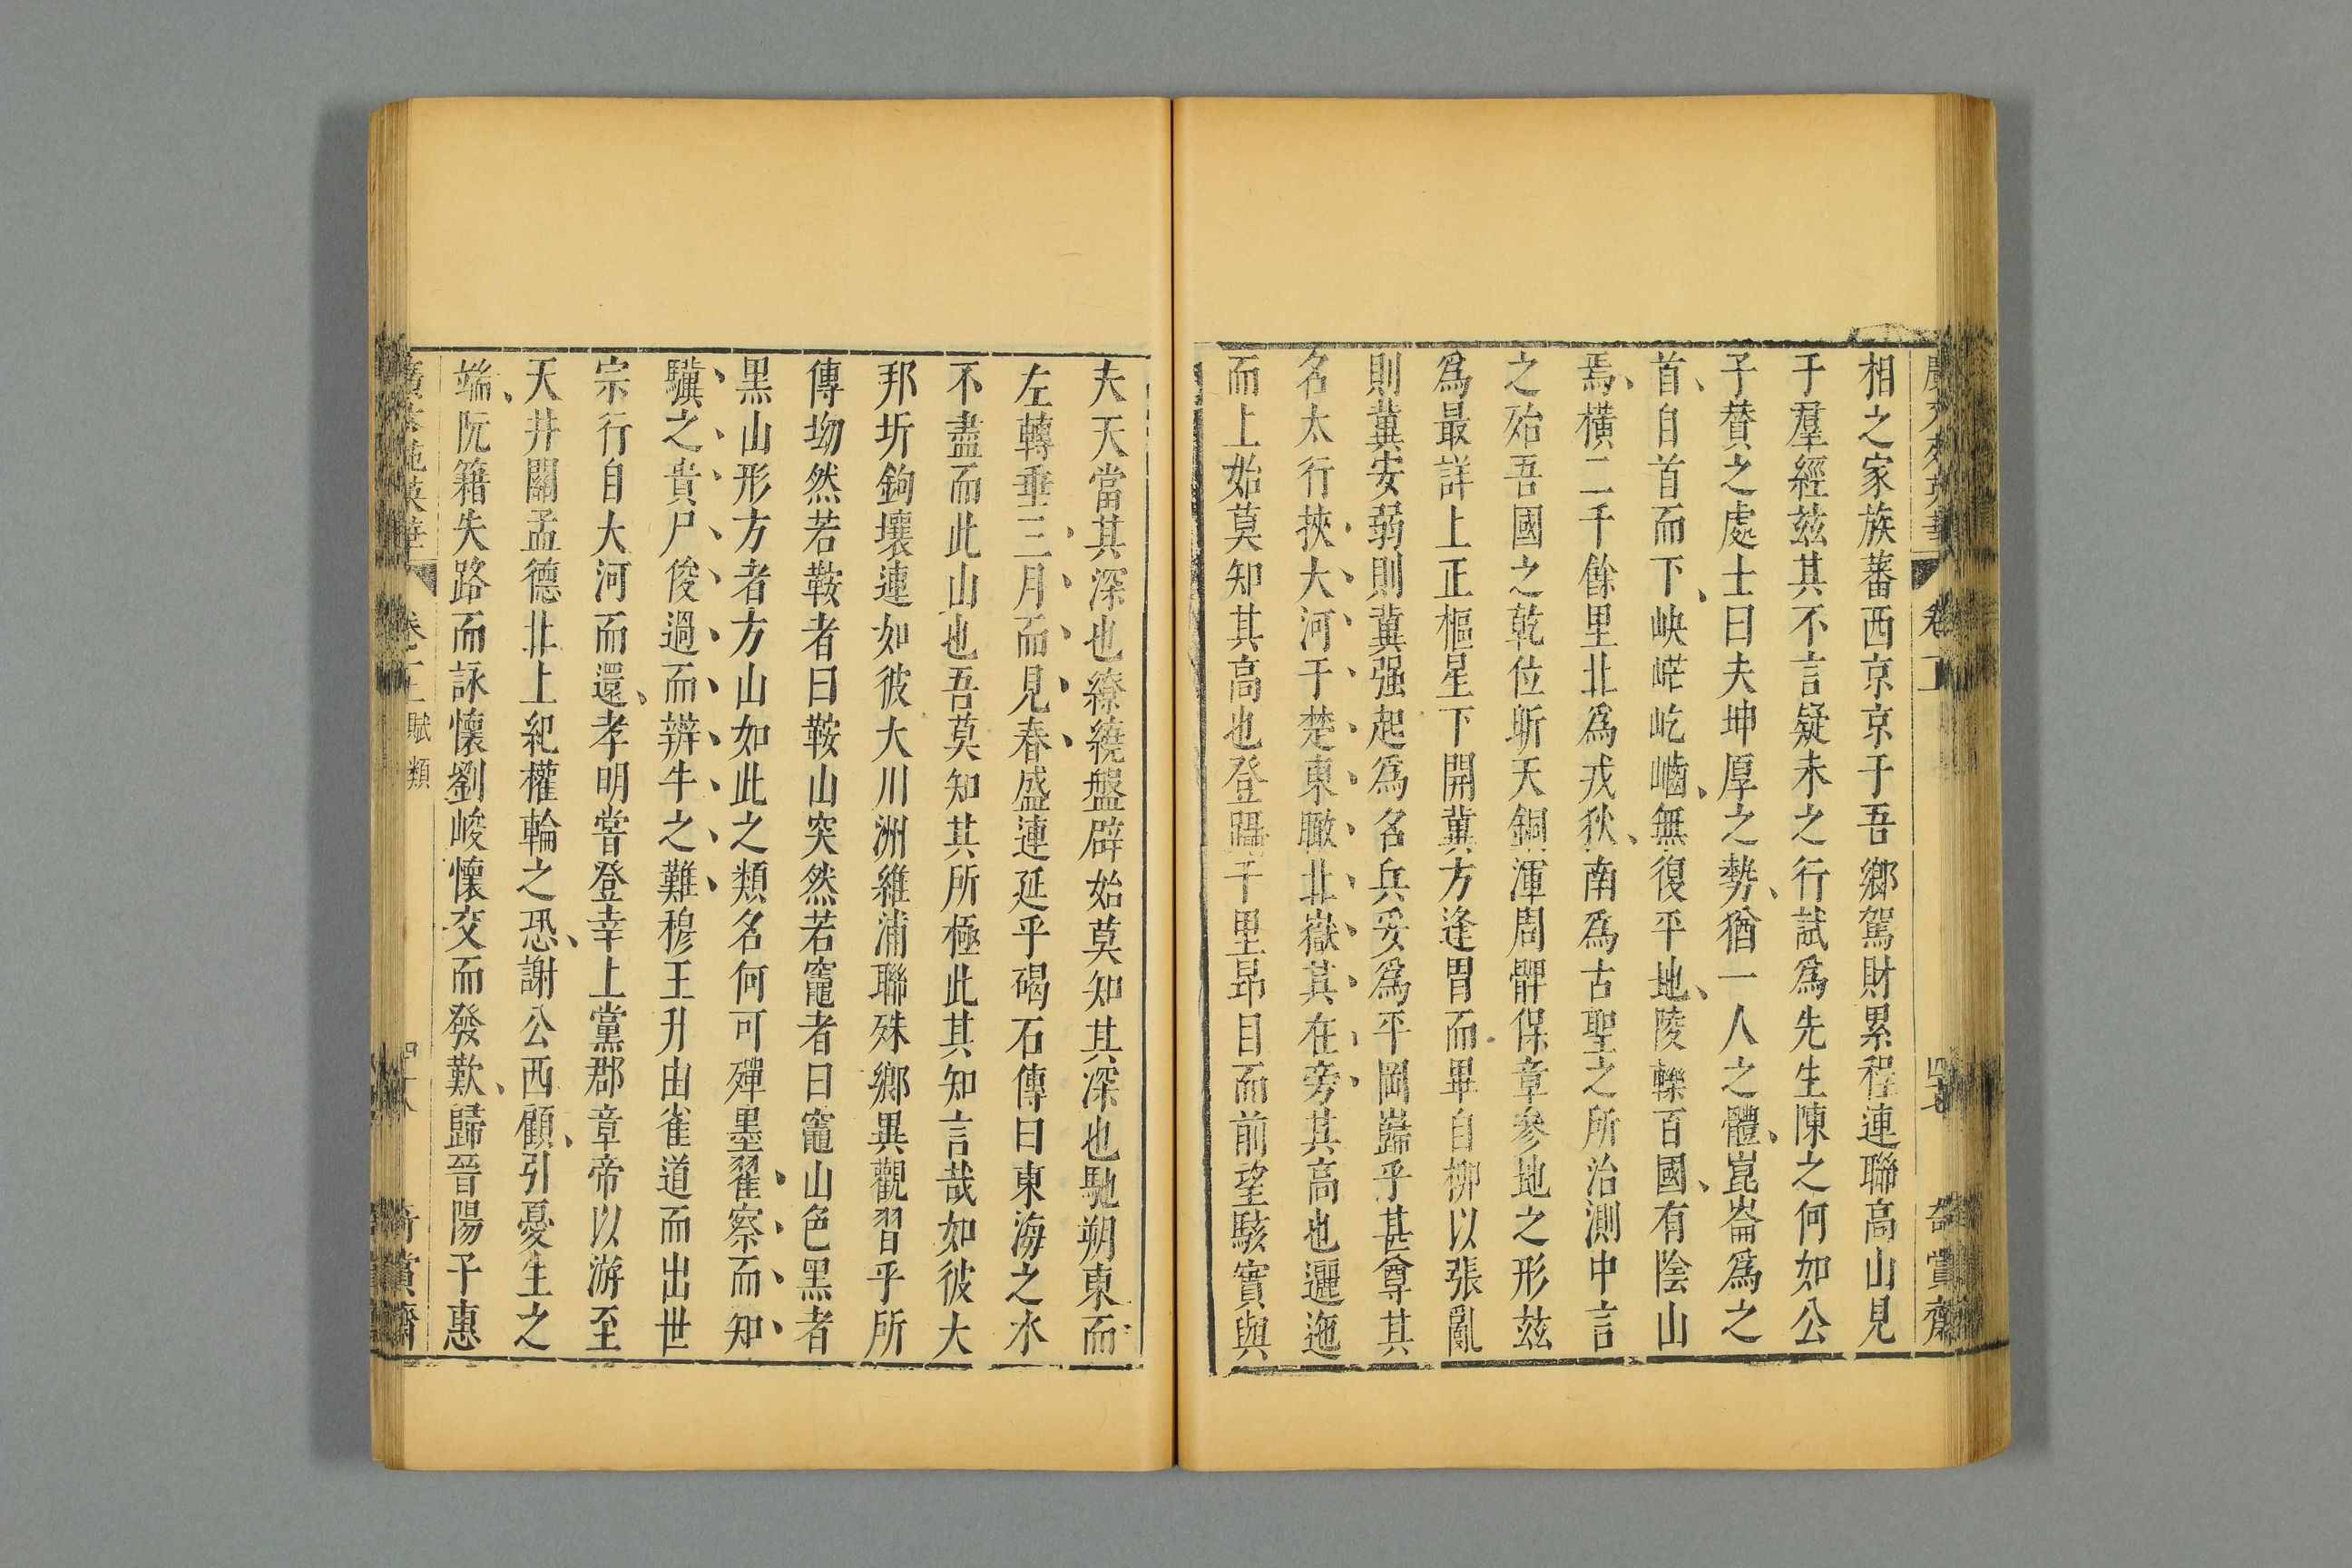 相之家族蕃西京京于吾鄉駕財累程連聯高山見
于羣經玆其不言疑未之行試爲先生陳之何如公
子賛之處士曰夫坤厚之勢猶一人之體崑崙爲之
首自首而下岟㟐屹崰無復平地陵轢百國有陰山
焉橫二千餘里北爲戎狄南爲古聖之所治測中言
之殆吾國之乾位斪天銅渾周髀保章參地之形玆
爲最詳上正樞星下開冀方逢胃而畢自柳以張亂
則冀安弱則冀强起爲名兵妥爲平岡巋乎甚尊其
名太行挾大河干楚東瞰北嶽其在旁其高也邐迤
而上始莫知其高也登躡千里昻目而前望駭實與
夫天當其深也繚繞盤辟始莫知其深也馳朔東而
左轉垂三月而見春盛連延乎碣石傳曰東海之水
不盡而此山也吾莫知其所極此其知言哉如彼大
邦圻鉤壤連如彼大川洲維浦聯殊鄉異觀習乎所
傳坳然若鞍者曰鞍山突然若竈者曰竈山色黑者
黑山形方者方山如此之類名何可殫墨翟察而知
驥之貴尸俊過而辨牛之難穆王升由雀道而出世
宗行自大河而還孝明嘗登幸上黨郡章帝以游至
天井關孟德北上紀權輪之恐謝公西顧引憂生之
端阮籍失路而詠懷劉峻懷交而發歎歸晉陽予惠
賦類